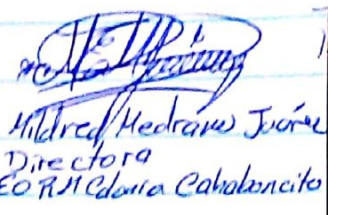 Mildred Medrano Juáre
Directora
EORM Colonia Cahaboncito